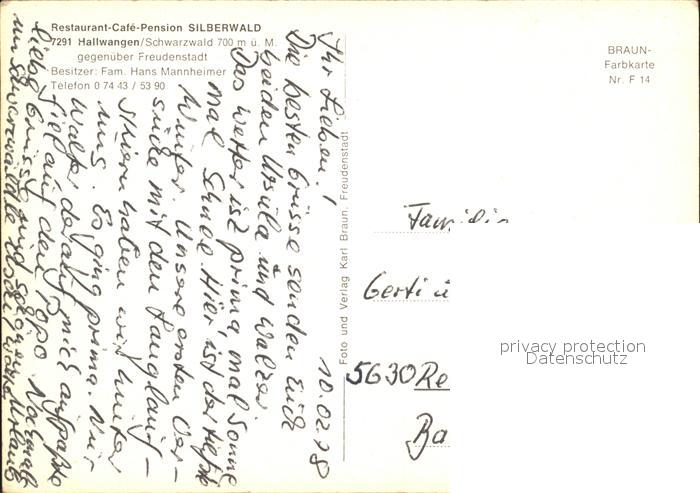 Restaurant-Café-Pension SILBERWALD
7291 Hallwangen/Schwarzwald 700 m ü. M.
gegenüber Freudenstadt
Besitzer: Fam. Hans Mannheimer
Telefon 0 74 43 / 53 90
BRAUN-
Farbkarte
Nr. F 14
Foto und Verlag Karl Braun, Freudenstadt
10.02.78
Ihr Lieben!
Die besten Grüsse senden Euch
beiden Ursula und Walter.
Das Wetter ist prima, mal Sonne
mal Schnee. Hier ist der tiefste
Winter. Unsere ersten Ver-
suche mit den Langlauf-
skiern haben wir hinter
uns. Es ging prima. Nur
Walter, der auf mich aufpaßte
fiel auf den Popo. Nochmals
liebe Grüsse und schönen Urlaub
im Schwarzwald
Familie
Gerti u
5630 Re
Ba
privacy protection
Datenschutz